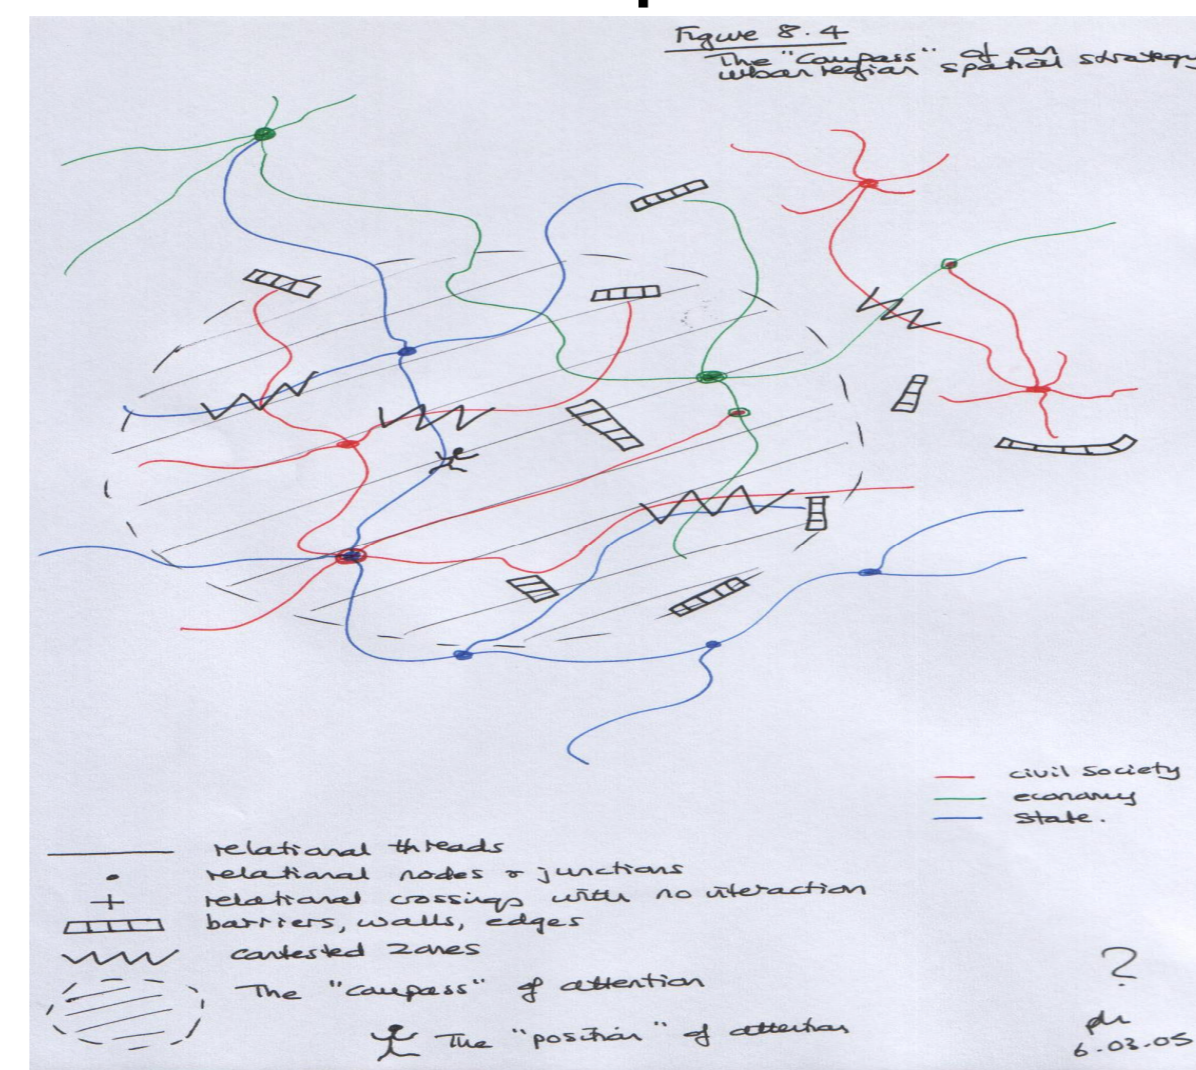 Figure 8.4
The "Compass" of an
urban region spatial strategy
civil society
economy
state.
relational threads
relational nodes & junctions
relational crossings with no interaction
barriers, walls, edges
contested zones
The "compass" of attention
The "position" of attention
?
6.03.05